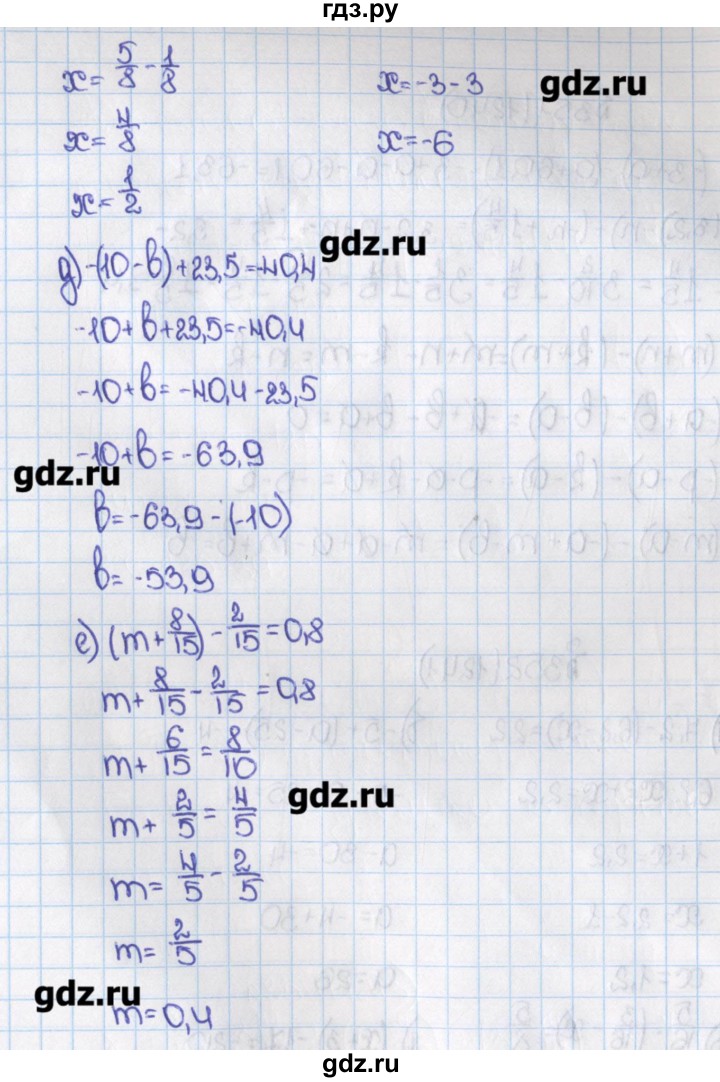 гдз.ру
x = 5/8 - 1/8
x = -3 - 3
gdz.ru
x = 4/8
x = -6
x = 1/2
gdz.ru
д) -(10 - b) + 23,5 = -40,4
-10 + b + 23,5 = -40,4
-10 + b = -40,4 - 23,5
-10 + b = -63,9
gdz.ru
b = -63,9 - (-10)
b = -53,9
е) (m + 8/15) - 2/15 = 0,8
m + 8/15 - 2/15 = 0,8
m + 6/15 = 8/10
gdz.ru
m + 2/5 = 4/5
m = 4/5 - 2/5
m = 2/5
gdz.ru
m = 0,4
gdz.ru